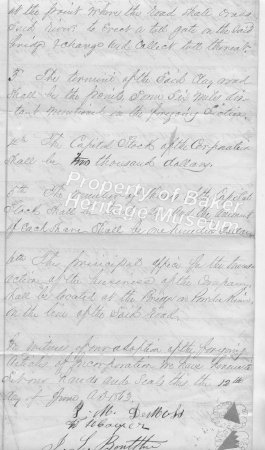 at the point where the road shall cross
said river to erect a toll gate on the said
bridge & change and collect toll thereat.
3rd The termini of the said Plug road
shall be the points some six miles dis-
tant mentioned in the forgoing section
4th The Capital Stock of the Corporation
shall be two thousand dollars.
5th The number of shares of the Capital
Stock shall be and the amount
of each share shall be one hundred dollars
6th The principal office for the trans-
action of the business of the Company
shall be located at the Bridge on Powder River
on the line of the said Road.
In witness of our adoption of the forgoing
articles of incorporation we have hereunto
set our hands and seals this the 12th
day of June A.D. 1863.
Property of Baker
Heritage Museum